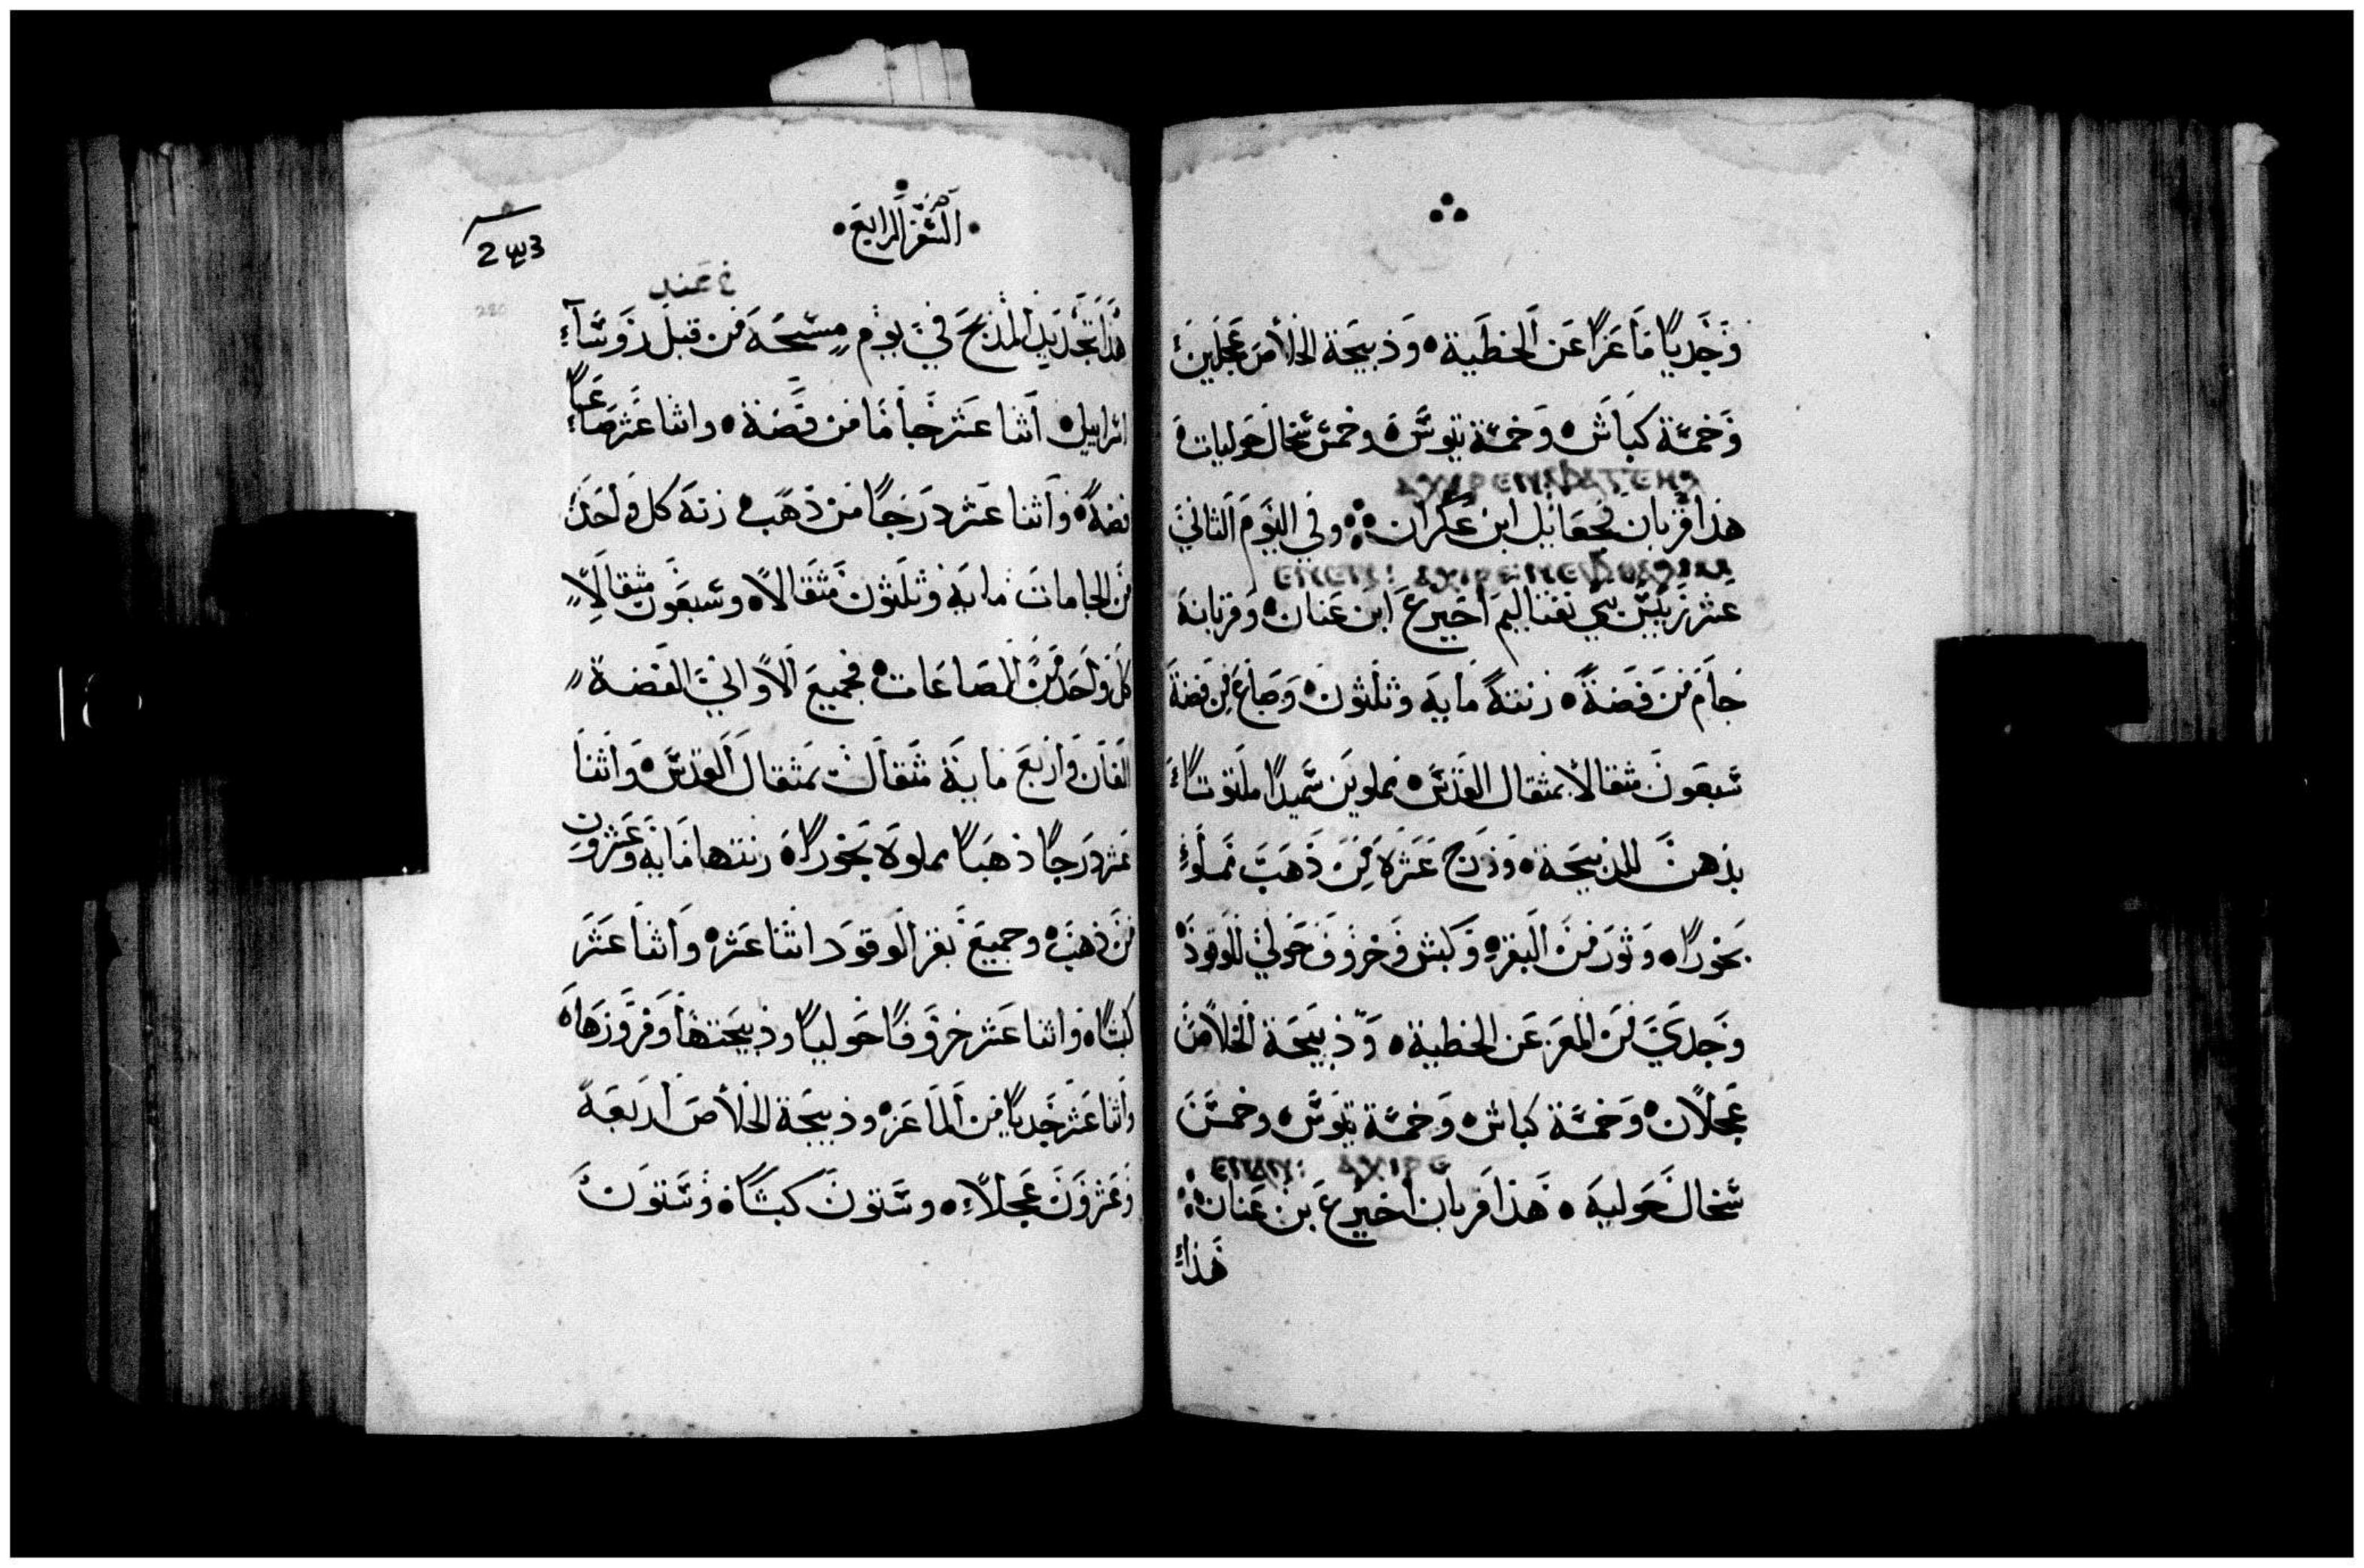 وَجَديًا مَاعَزًا عَن الخطَية ۵ وَذبيَحَة الخلاصَ عَجلين
وَخمسَة كبَاش ۵ وَخمسَة تيوسَ ۵ وخمسَ سَخال حَوليات ۵
هَذا قربان نجعَايل ابن عَكران ۵ وفي اليَومَ الثاني
عشر رييسَ بني نفتاليم اخيرع ابن عَنان ۵ وَقربانهَ
جَام مَن فَضة ۵ زنتهَ مايَه وثلثون ۵ وَصَاع مِن فضة
سَبعَون مثقالا بمثقال القدسَ ۵ مملوين سَميدًا ملتوتا
بدهن للذبيحَة ۵ وَدرَج عَشرَة مِن ذَهَبَ مَملوء
بخَورًا ۵ وَثورَ مَن البَقر ۵ وَكبش وَخرَوف حَولي للوقود ۵
وَجدي مَن المعَز عَن الخطية ۵ وَذبيَحة الخلاصَ
عَجلان ۵ وَخمسَة كباش ۵ وَخمسَة تيوسَ ۵ وخمسَ
سَخال حَوليهَ ۵ هَذا قربان اخيرع بن عَنان
هَذا
السَفر الرابعَ
عند
هَذا تجَديد المذبحَ في يوم مسِحَه من قبل رَوسَاء
اسَراييل ۵ اثنا عَشر جَامًا من فَضة ۵ واثنا عَشر صَاعًا
فضة ۵ وَاثنا عَشر دَرَجًا مَن ذَهَب ۵ زنة كل وَاحَد
مَن الجامات مايَه وَثلثون مَثقالا ۵ وسَبعَون مثقالا
كل وَاحَد مَن الصَاعَات ۵ فجميعَ الاواني الفَضة
الفان وَاربعَ ماية مثقال بمثقال القدسَ ۵ وَاثنا
عَشر دَرجًا ذهَبًا مملوة بَخورًا ۵ زنتها مَاية وَعَشرون
مَن ذهَب ۵ وجميعَ بقر الوقود اثنا عَشر ۵ وَاثنا عَشَر
كبشًا ۵ وَاثنا عَشر خرَوفًا حَوليًا وذبيَحتها وَفروزهَا ۵
وَاثنا عَشر جَديًا من المَاعَز ۵ وذبيَحة الخلاصَ اربعَة
وَعَشرَون عَجلاً ۵ وسَتون كبشًا ۵ وَسَتون